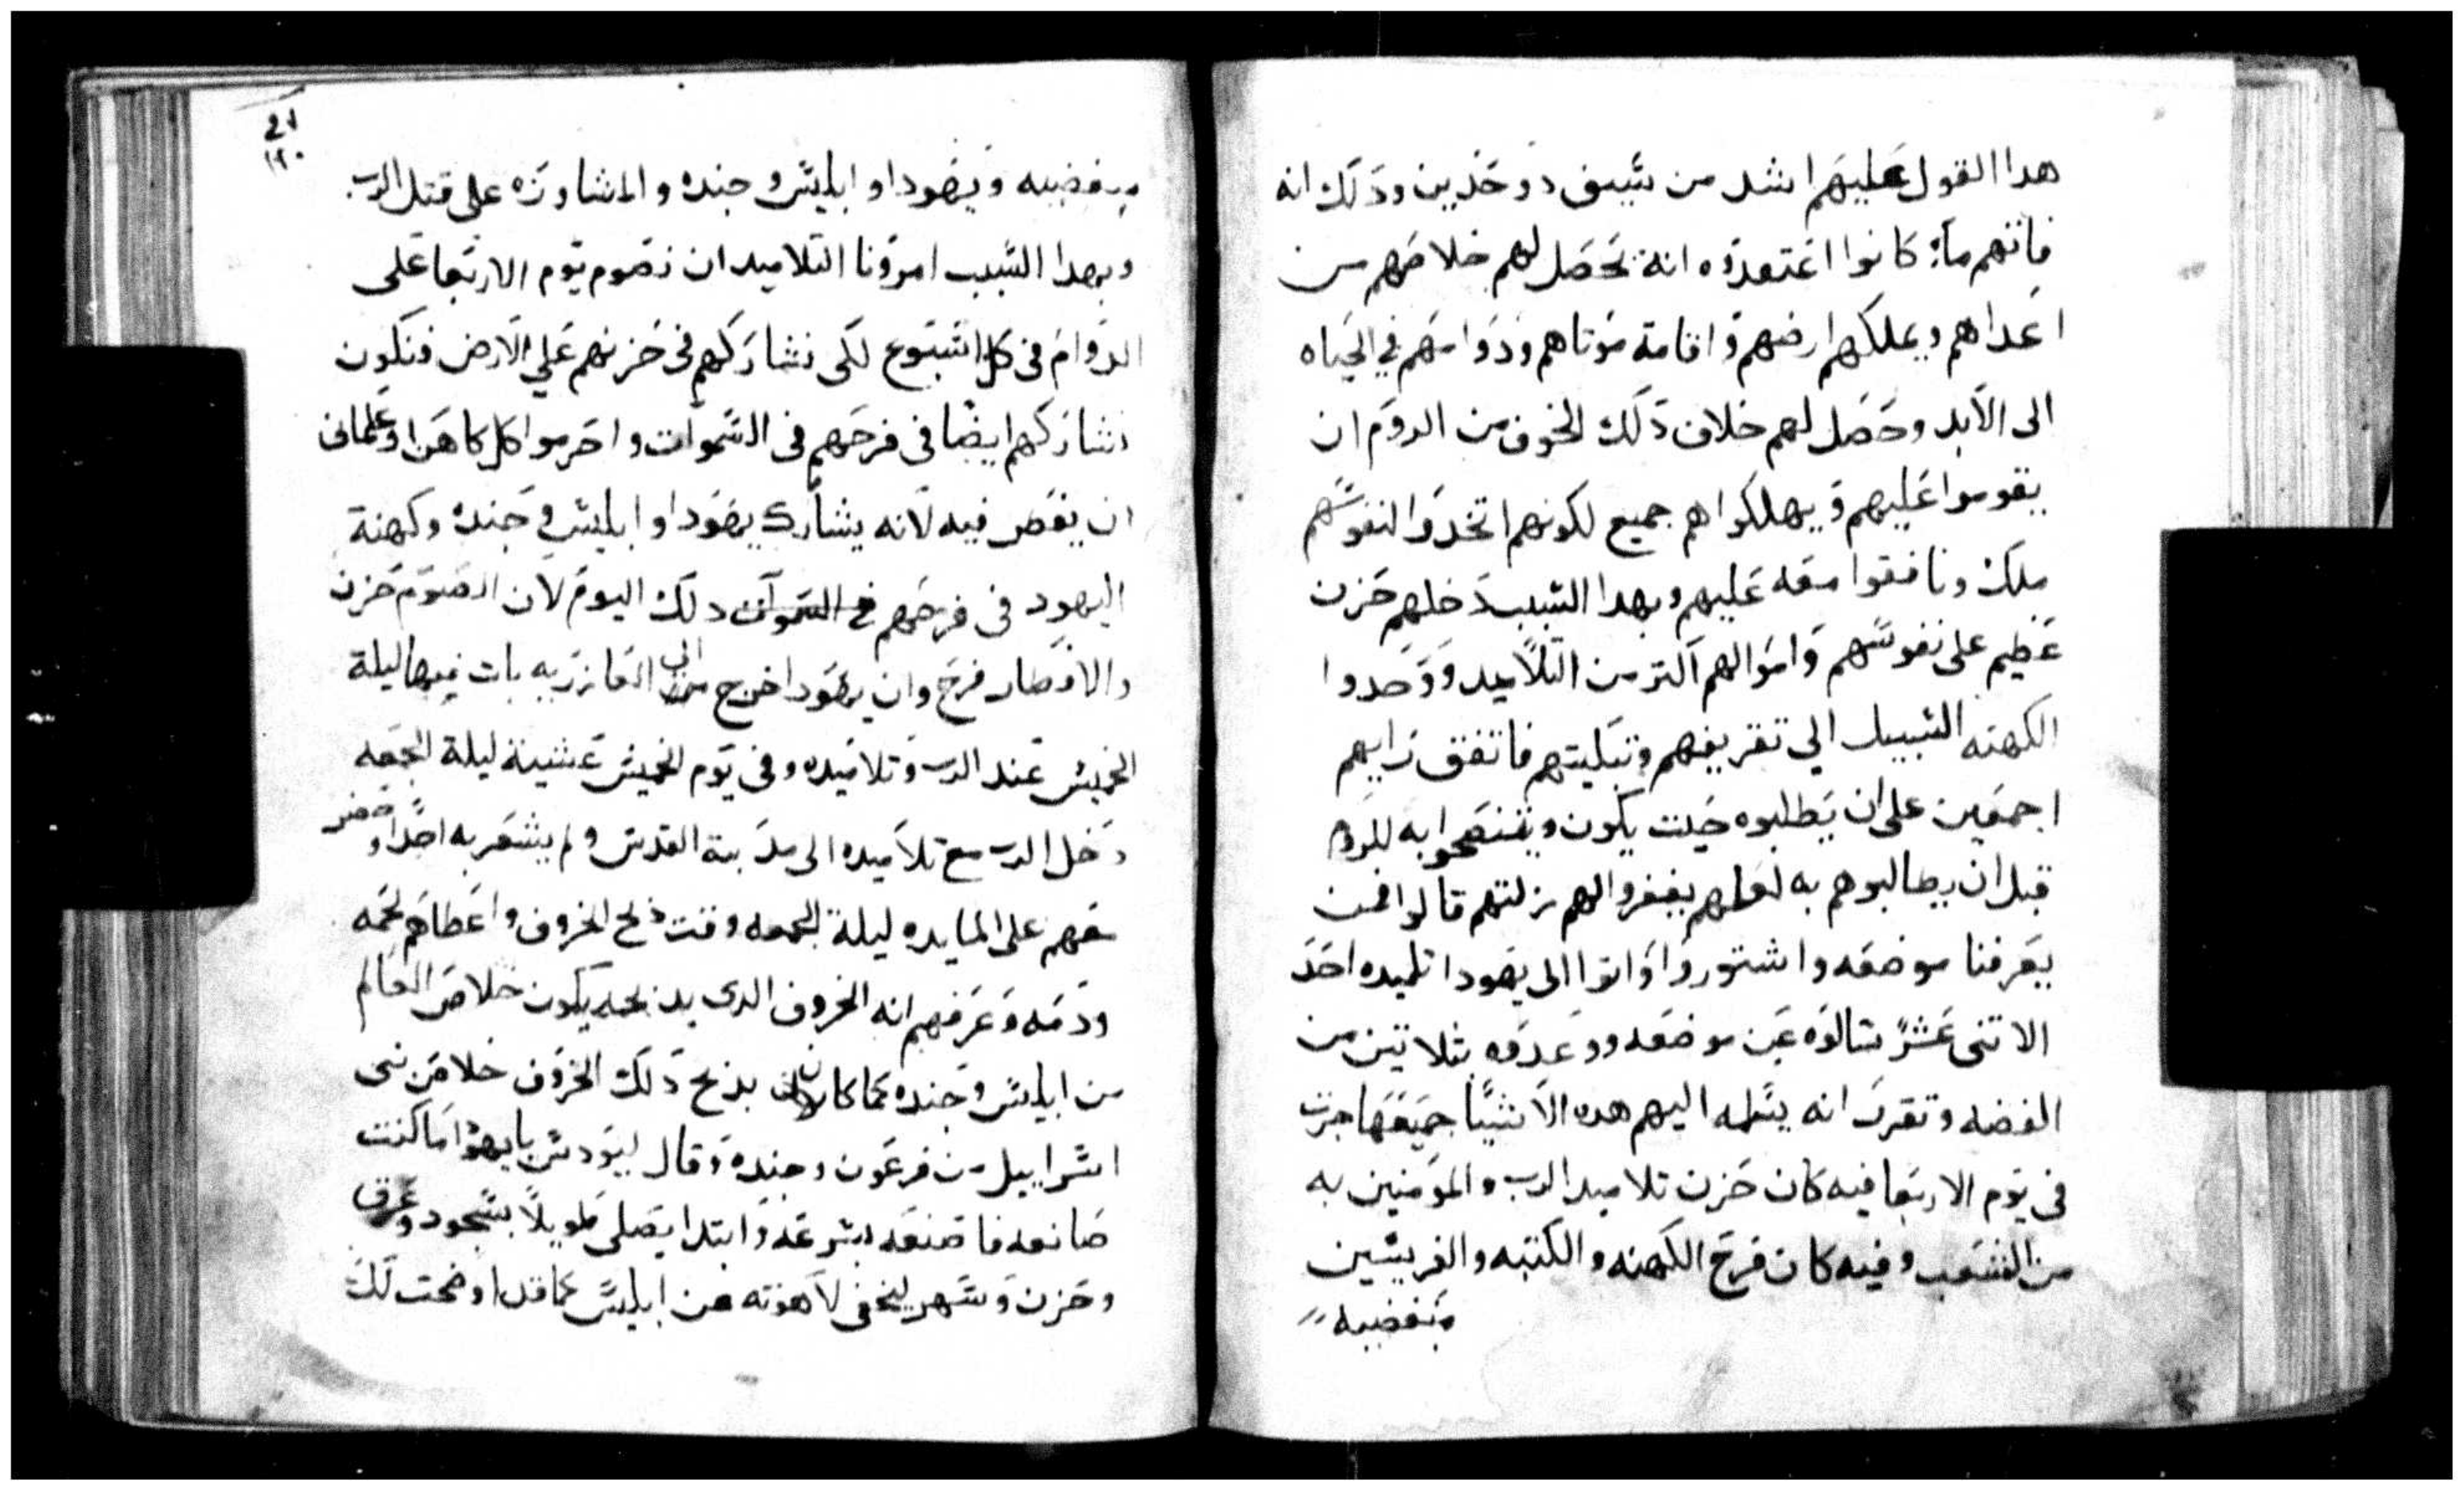 هدا القول عليهم اشد من سيف دو حدين ودلك انه
فاتهم ما كانوا اعتمدوه انه يحصل لهم خلاصهم من
اعداهم ويملكهم ارضهم واقامة موتاهم ودوامهم في الحياه
الى الابد وحصل لهم خلاف دلك الخوف من الروم ان
يقوموا عليهم ويهلكوا هم جميع لكونهم اتخدوا لنفوسهم
ملك ونافقوا معه عليهم وبهدا السبب دخلهم حزن
عظيم على نفوسهم واموالهم اكتر من التلاميد ووجدوا
الكهنه السبيل الي تقريعهم وتبكيتهم فاتفق رايهم
اجمعين على ان يطلبوه حيت يكون ويتنصحوا به للروم
قبل ان يطالبوهم به لعلهم يغفروا لهم زلتهم قالوا فمن
يعرفنا موضعه واشتوروا واتوا الى يهودا تلميده احد
الاتنى عشر سالوه عن موضعه ووعدوه بتلاتين من
الفضه وتقرر انه يسلمه اليهم هده الاشيا جميعها جرت
فى يوم الاربعا فيه كان حزن تلاميد الرب والمومنين به
من الشعب وفيه كان فرح الكهنه والكتبه والفريسين
مبغضيه
١٢٠
مبغضيه ويهودا وابليس وجنده والمشاوره على قتل الرب
وبهدا السبب امرونا التلاميد ان نصوم يوم الاربعا على
الدوام فى كل اسبوع لكى نشاركهم فى حزنهم على الارض فنكون
نشاركهم ايضا فى فرحهم فى السموات واحرموا كل كاهن او علمانى
ان يفطر فيه لانه يشارك يهودا وابليس وجنده وكهنة
اليهود فى فرحهم فى السموات دلك اليوم لان الصوم حزن
والافطار فرح وان يهودا خرج من الى العازريه بات فيها ليلة
الخميس عند الرب وتلاميده وفى يوم الخميس عشية ليلة الجمعه
دخل الرب مع تلاميده الى مدينة القدس ولم يشعر به احدا وحضر
معهم على المايده ليلة الجمعه وقت دبح الخروف واعطاهم لحمه
ودمه وعرفهم انه الخروف الدى بدبحه يكون خلاص العالم
من ابليس وجنده كما كان بدبح دلك الخروف خلاص بنى
اسراييل من فرعون وجنده وقال ليودس يا يهودا ما كنت
صانعه فاصنعه بسرعه وابتدا يصلى طويلا بسجود وعرق
وحزن وسهر ليخفى لاهوته عن ابليس كما قد اوضحت لك